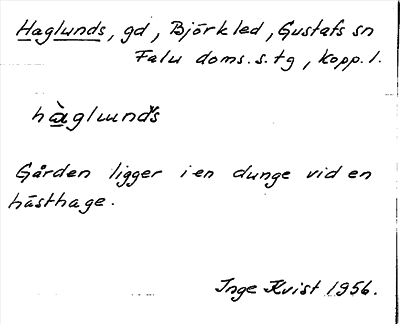 Haglunds, gd, Björkled, Gustafs sn
Falu doms.s.tg, Kopp.l.
hàglunds
Gården ligger i en dunge vid en
hästhage.
Inge Kvist 1956.